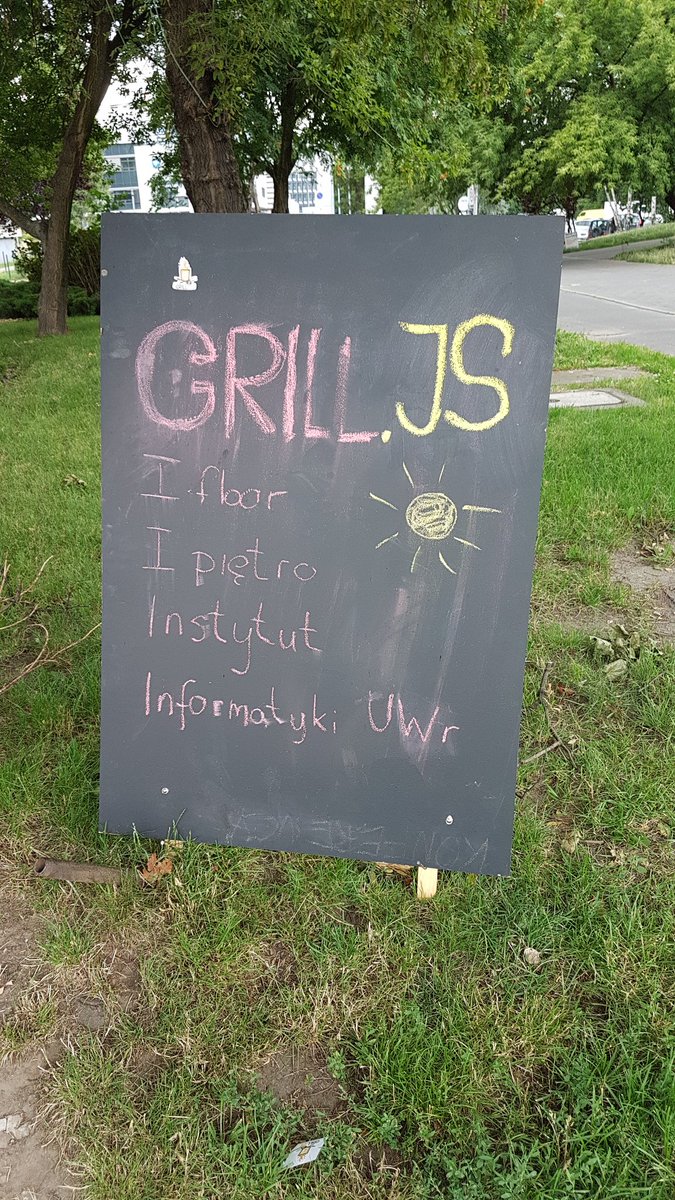 GRILL.JS
I floor
I piętro
Instytut
Informatyki UWr